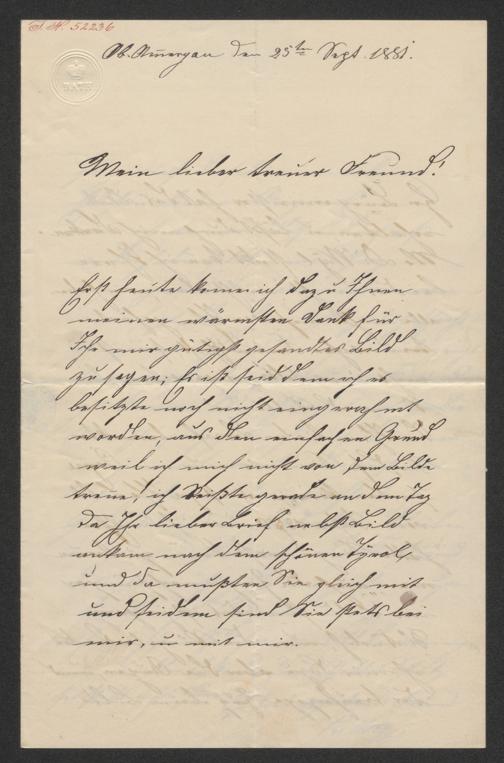 J. N. 52236
BATH
Ob. Amergau den 25ten Sept. 1881.
Mein lieber treuer Freund!
Erst heute kome ich dazu Ihnen
meinen wärmsten Dank für
Ihr mir gütigst gesandtes Bild
zu sagen; Es ist seid dem ich es
besitzte noch nicht eingerahmt
worden, aus dem einfachen Grund
weil ich mich nicht von dem Bilde
trene, ich reißte gerade an dem Tag
da Ihr lieber Brief nebst Bild
ankam nach dem schönen Tyrol,
und da mußten Sie gleich mit
und seidem sind Sie stets bei
mir, u mit mir.